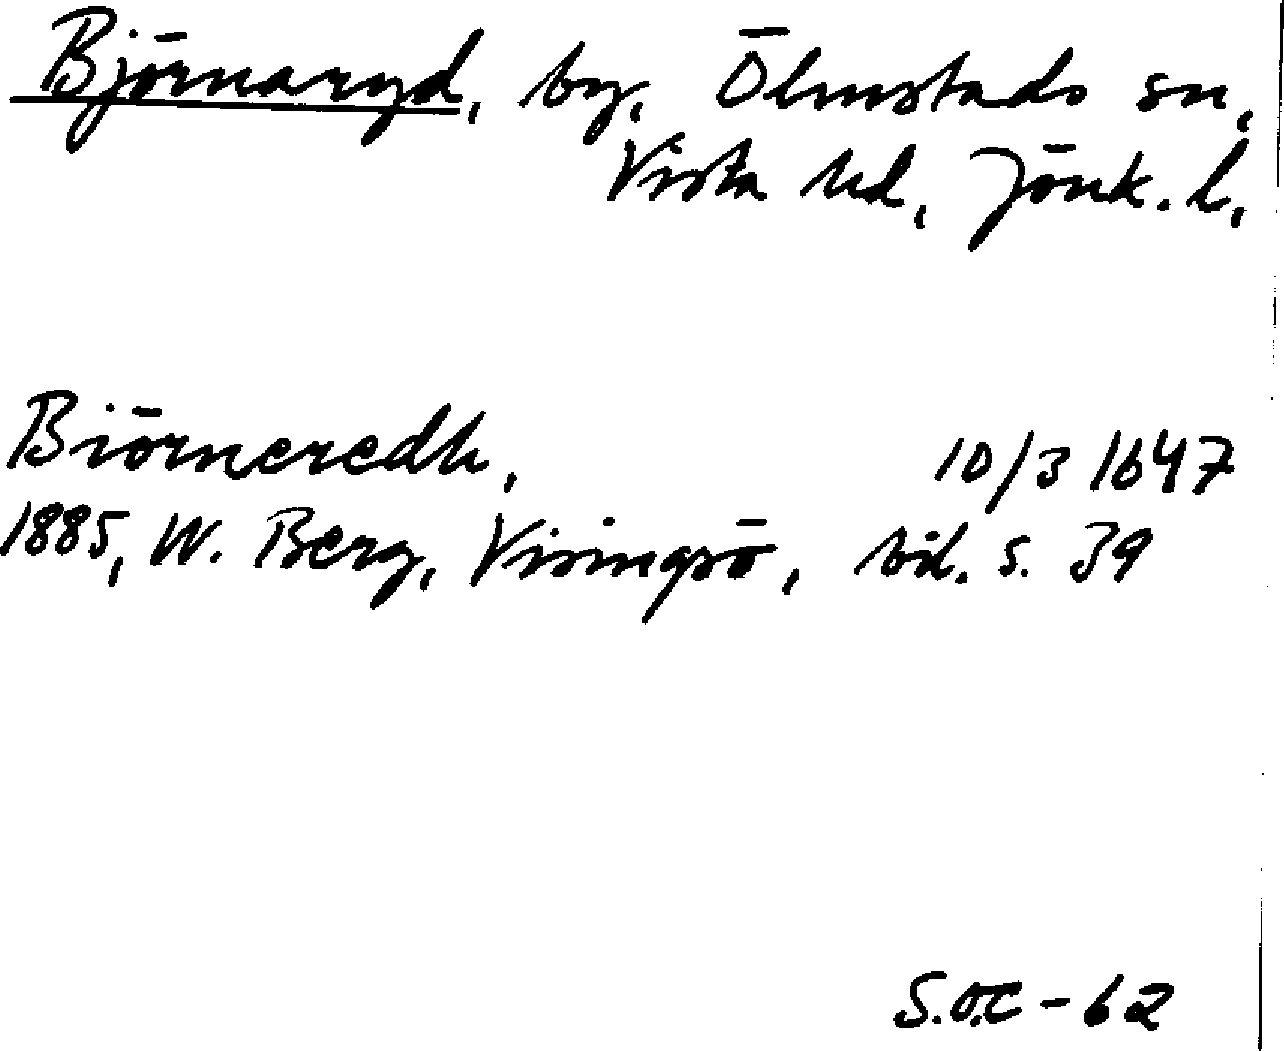 Björnaryd, by, Ölmstads sn,
Vista hd, Jönk. l.
Biörneredh, 10/3 1647
1885, W. Berg, Visingsö, bil. s. 39
S.O.C - 62